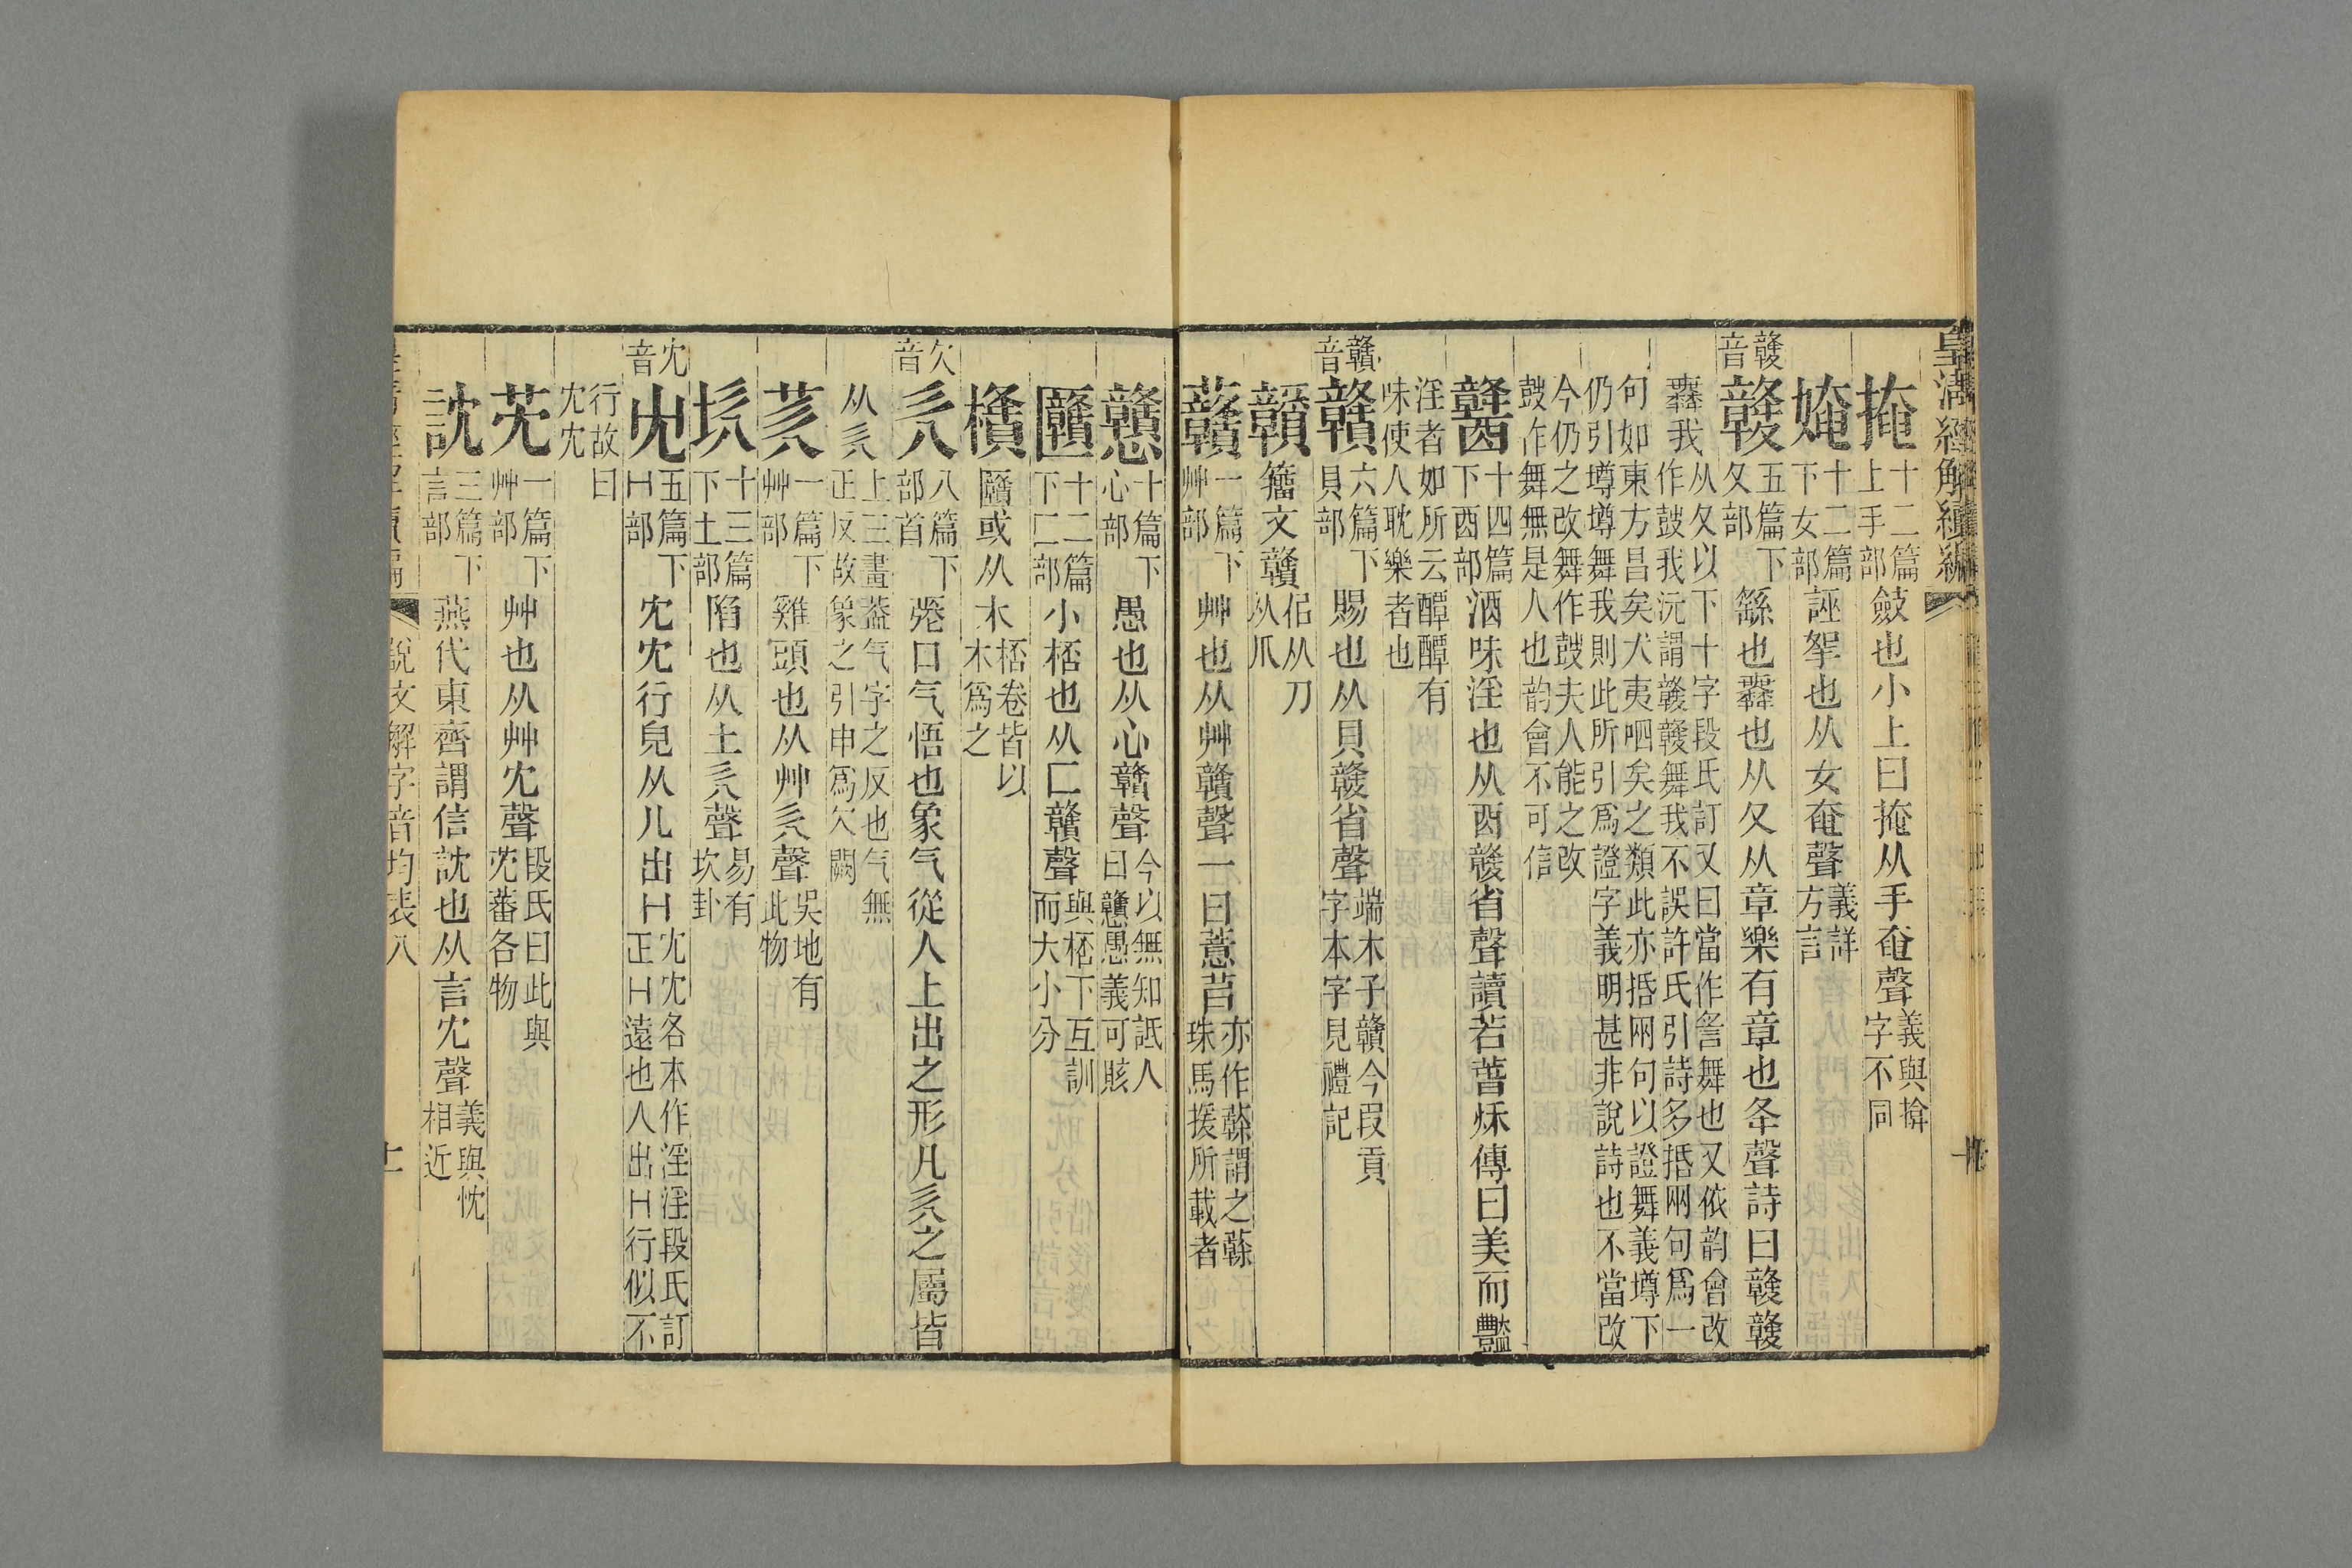 皇清經解續編
掩 十二篇上手部 斂也小上曰掩从手奄聲 義與揜字不同
媕 十二篇下女部 誣挐也从女奄聲 義詳方言
竷音 竷 五篇下夊部 繇也舞也从夊从章樂有章也夅聲詩曰竷竷
舞我 从夊以下十字段氏訂又曰當作舞也又依韵會改作鼓我沅謂竷竷舞我不誤許氏引詩多括兩句爲一
句如東方昌矣犬夷呬矣之類此亦括兩句以證舞義墫下仍引墫墫舞我則此所引爲證字義明甚非說詩也不當改
今仍之改舞作鼓夫人能之改鼓作舞無是人也韵會不可信
醓 十四篇下酉部 酒味淫也从酉竷省聲讀若春秋傳曰美而豔
淫者如所云醰醰有味使人耽樂者也
贛音 贛 六篇下貝部 賜也从貝竷省聲 端木子贛今叚貢字本字見禮記
籀文贛 从爪 从刀
一篇下艸部 艸也从艸贛聲一曰薏苢 亦作謂之珠馬援所載者
戇 十篇下心部 愚也从心贛聲 今以無知詆人曰戇愚義可賅
十二篇下匚部 小桮也从匚贛聲 與桮下互訓而大小分
或从木 桮卷皆以木爲之
欠音 八篇下部首 口气悟也象气從人上出之形凡之屬皆
从 上三畫蓋气字之反也气無正反故象之引申爲欠闕
一篇下艸部 雞頭也从艸聲 吳地有此物
十三篇下土部 陷也从土聲 易有坎卦
冘音 冘 五篇下冂部 冘冘行皃从儿出冂 冘冘各本作淫淫段氏訂正冂遠也人出冂行似不
行故曰冘冘
一篇下艸部 艸也从艸冘聲 段氏曰此與蕃各物
訦 三篇下言部 燕代東齊謂信訦也从言冘聲 義與忱相近
說文解字音均表八